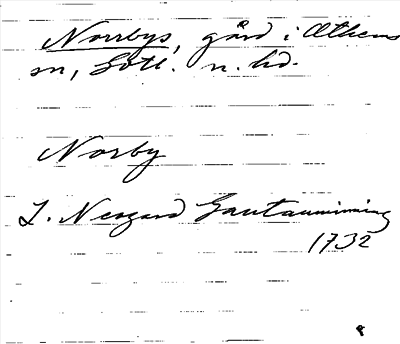 Norrbys, gård i Othems
sn, Gotl. n. hd.
Norby
L. Neogard Gautauminning
1732